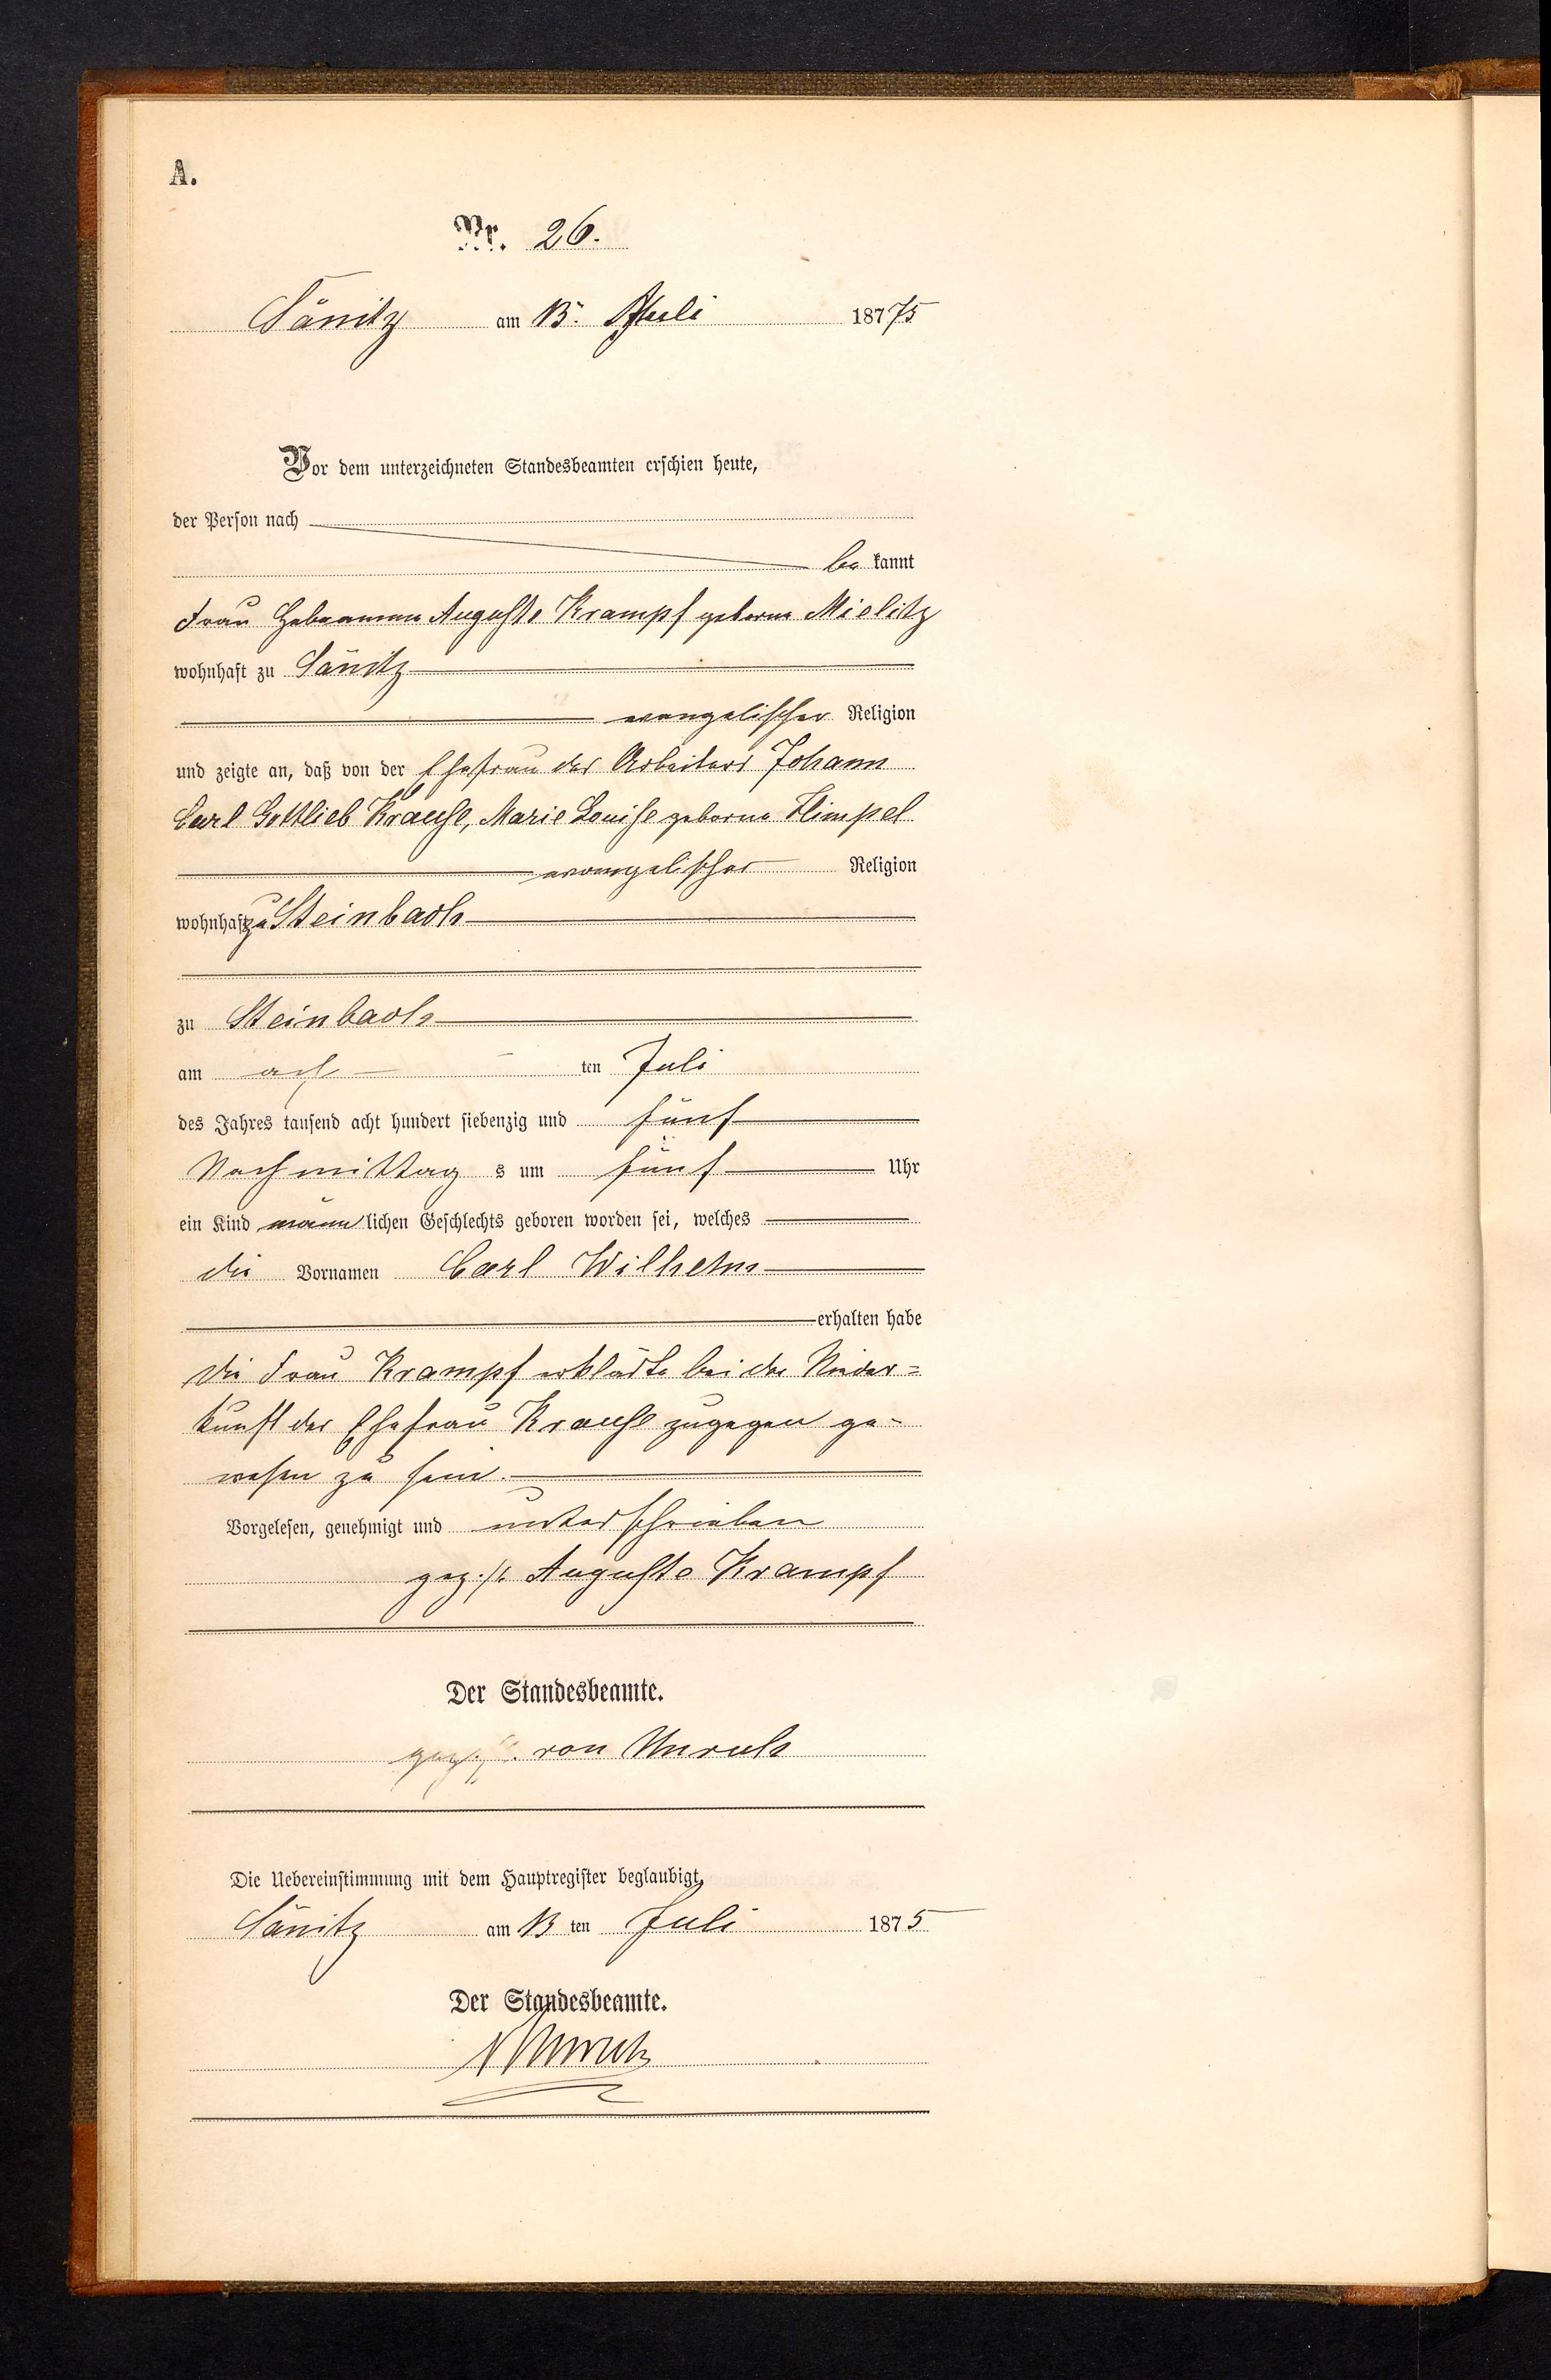 A.
Nr. 26.
Sänitz am 13. Juli 1875
Vor dem unterzeichneten Standesbeamten erschien heute,
der Person nach
be kannt
Frau Hebeamme Auguste Krampf geborne Mielitz
wohnhaft zu Sänitz
evangelischer Religion
und zeigte an, daß von der Ehefrau des Arbeiters Johann
Carl Gottlieb Krause, Marie Louise geborne Himpel
evangelischer Religion
wohnhaft zu Steinbach
zu Steinbach
am ach ten Juli
des Jahres tausend acht hundert siebenzig und fünf
Nachmittag s um fünf Uhr
ein Kind männlichen Geschlechts geboren worden sei, welches
die Vornamen Carl Wilhelm
erhalten habe
Die Frau Krampf erklärte bei der Nieder=
kunft der Ehefrau Krause zugegen ge-
wesen zu sein.
Vorgelesen, genehmigt und unterschrieben
gez. Auguste Krampf
Der Standesbeamte.
gez. von Unruh
Die Uebereinstimmung mit dem Hauptregister beglaubigt,
Sänitz am 13 ten Juli 1875
Der Standesbeamte.
vUnruh